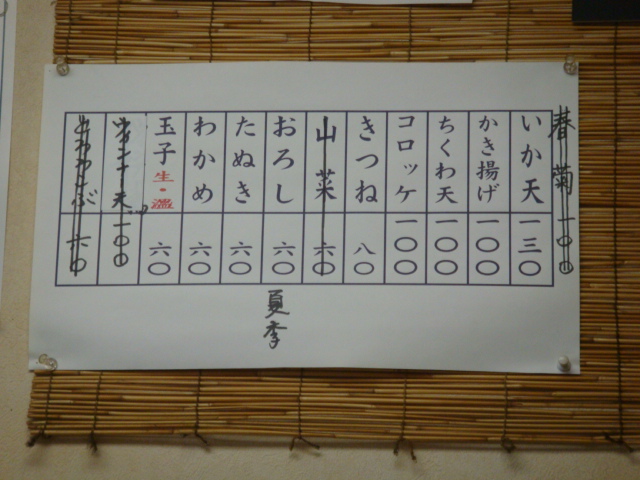 春菊 一〇〇
いか天 一三〇
かき揚げ 一〇〇
ちくわ天 一〇〇
コロッケ 一〇〇
きつね 八〇
山菜 六〇
おろし 六〇
夏季
たぬき 六〇
わかめ 六〇
玉子 生・温 六〇
一〇〇
六〇